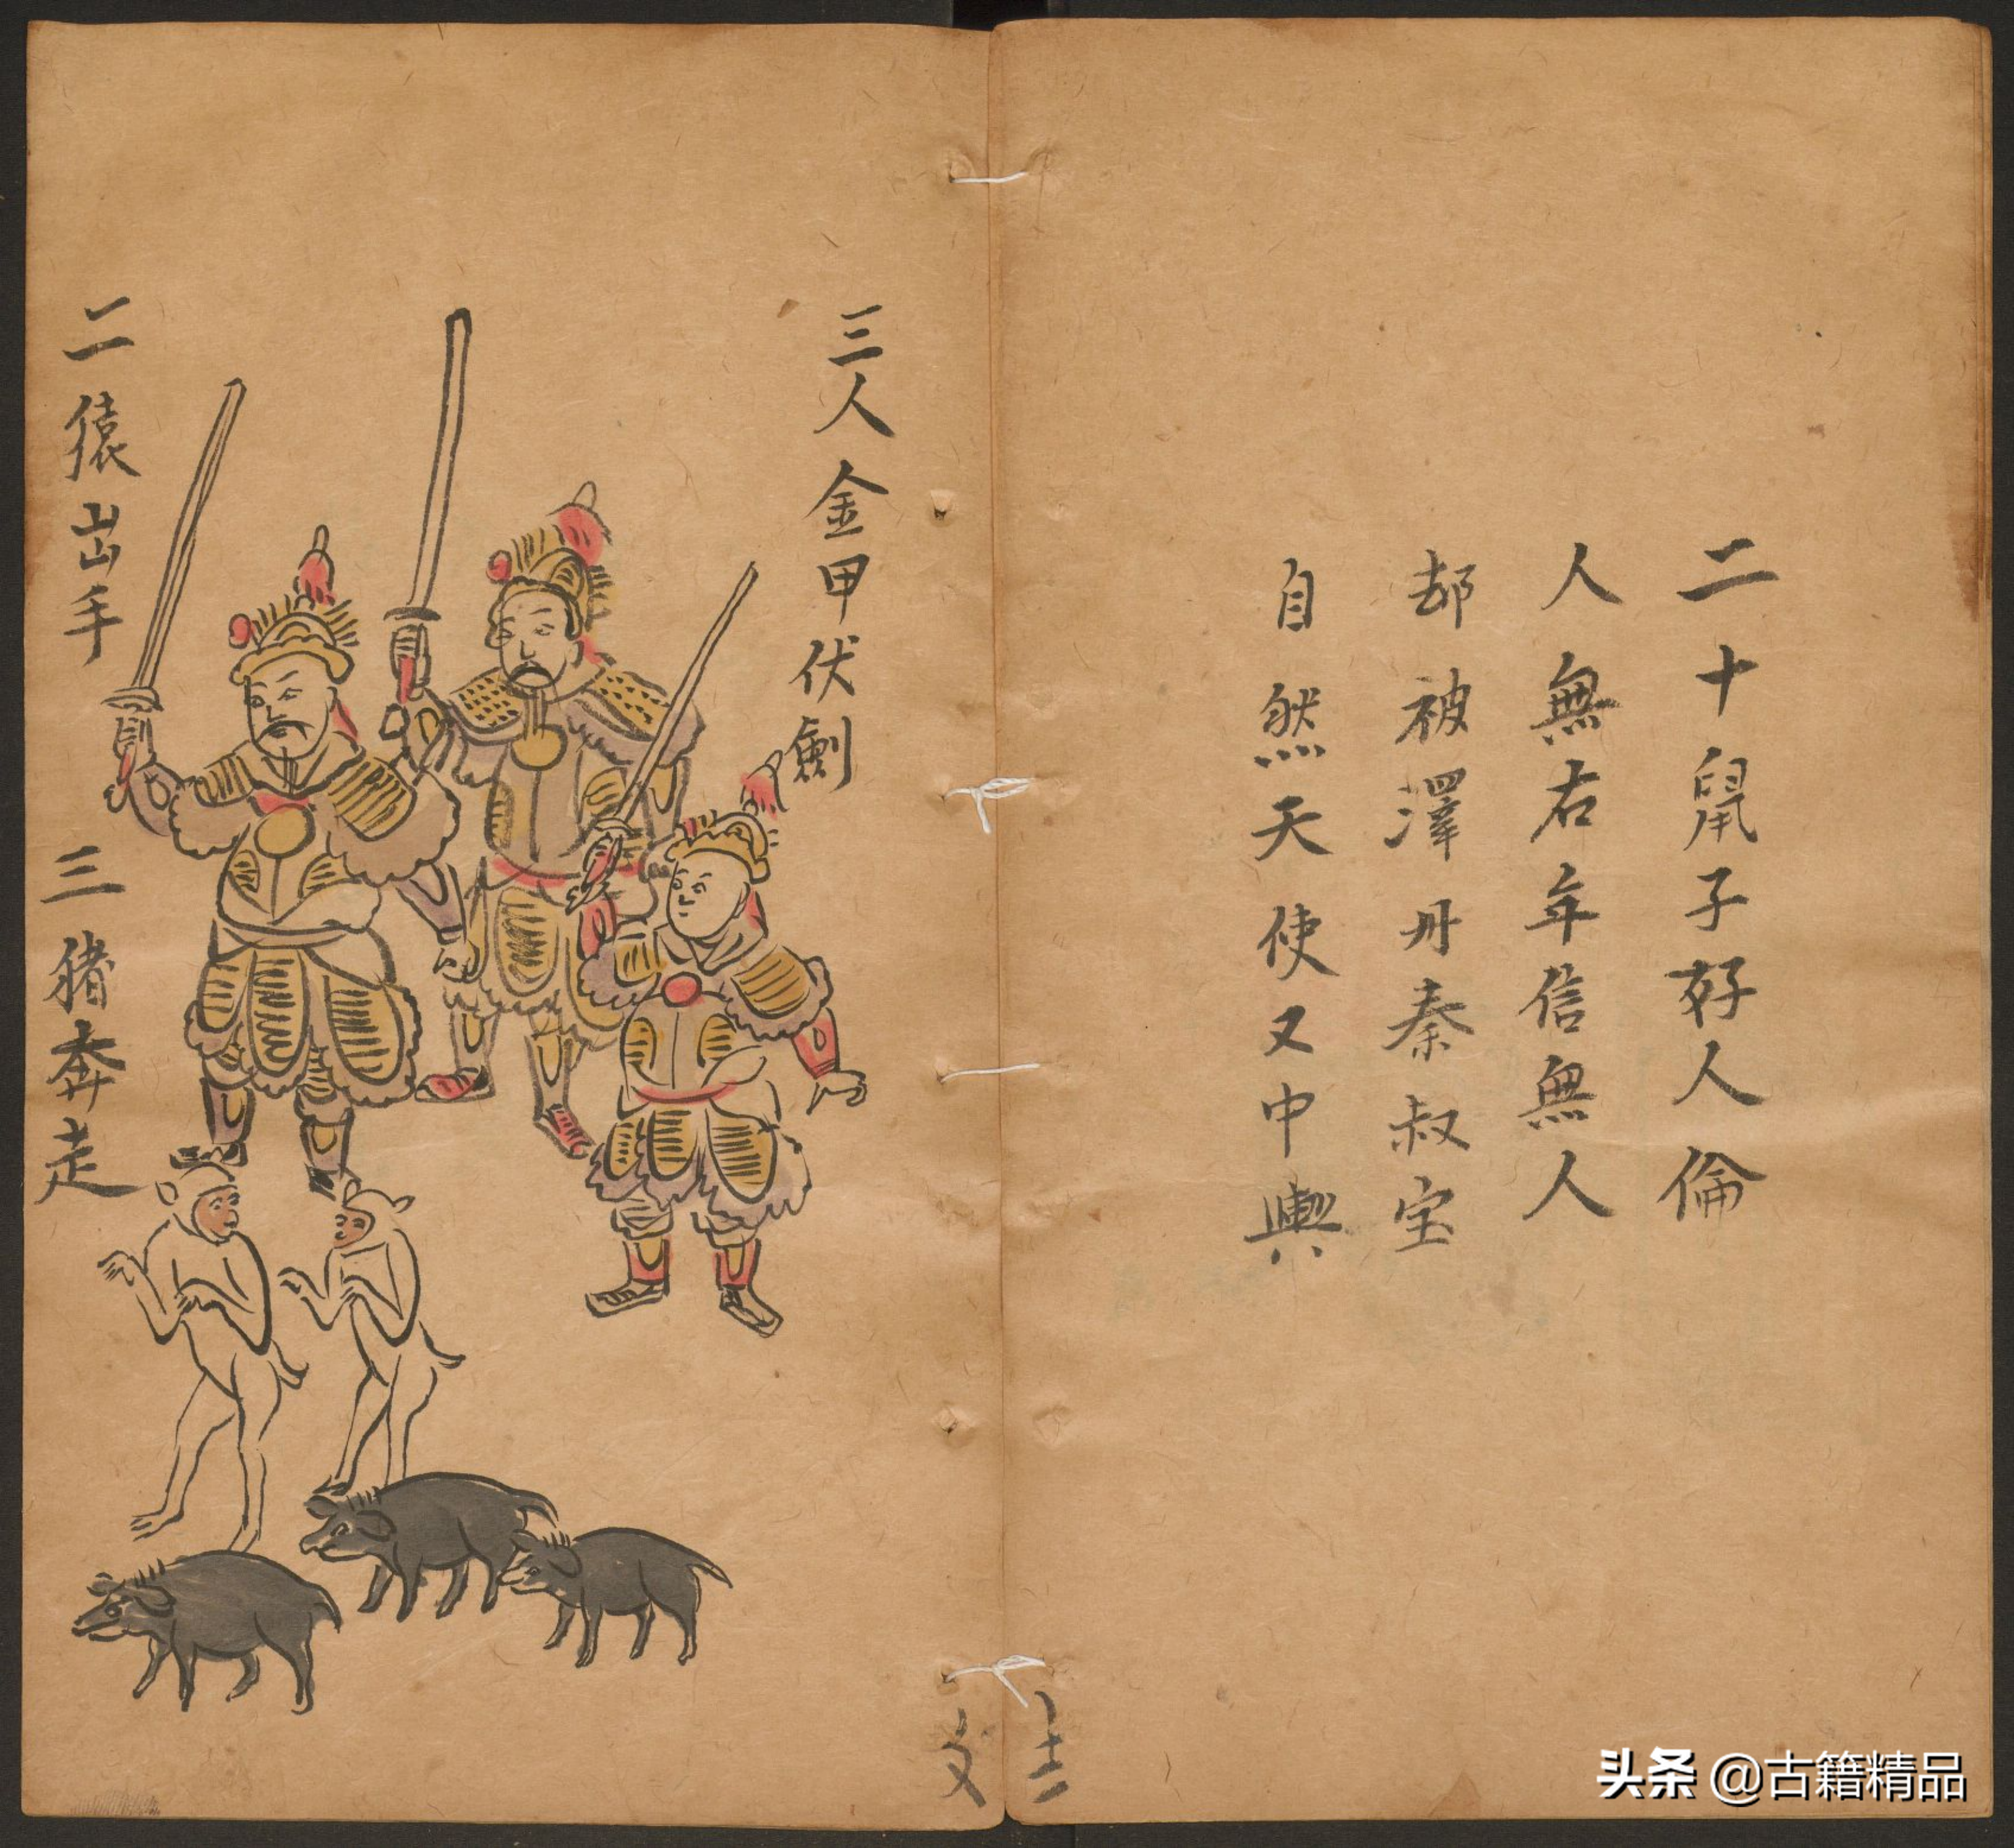 二十鼠子好人倫
人無右年信無人
却被澤丹秦叔宝
自然天使又中興
三人金甲伏劍
二猿出手
三猪奔走
头条 @古籍精品